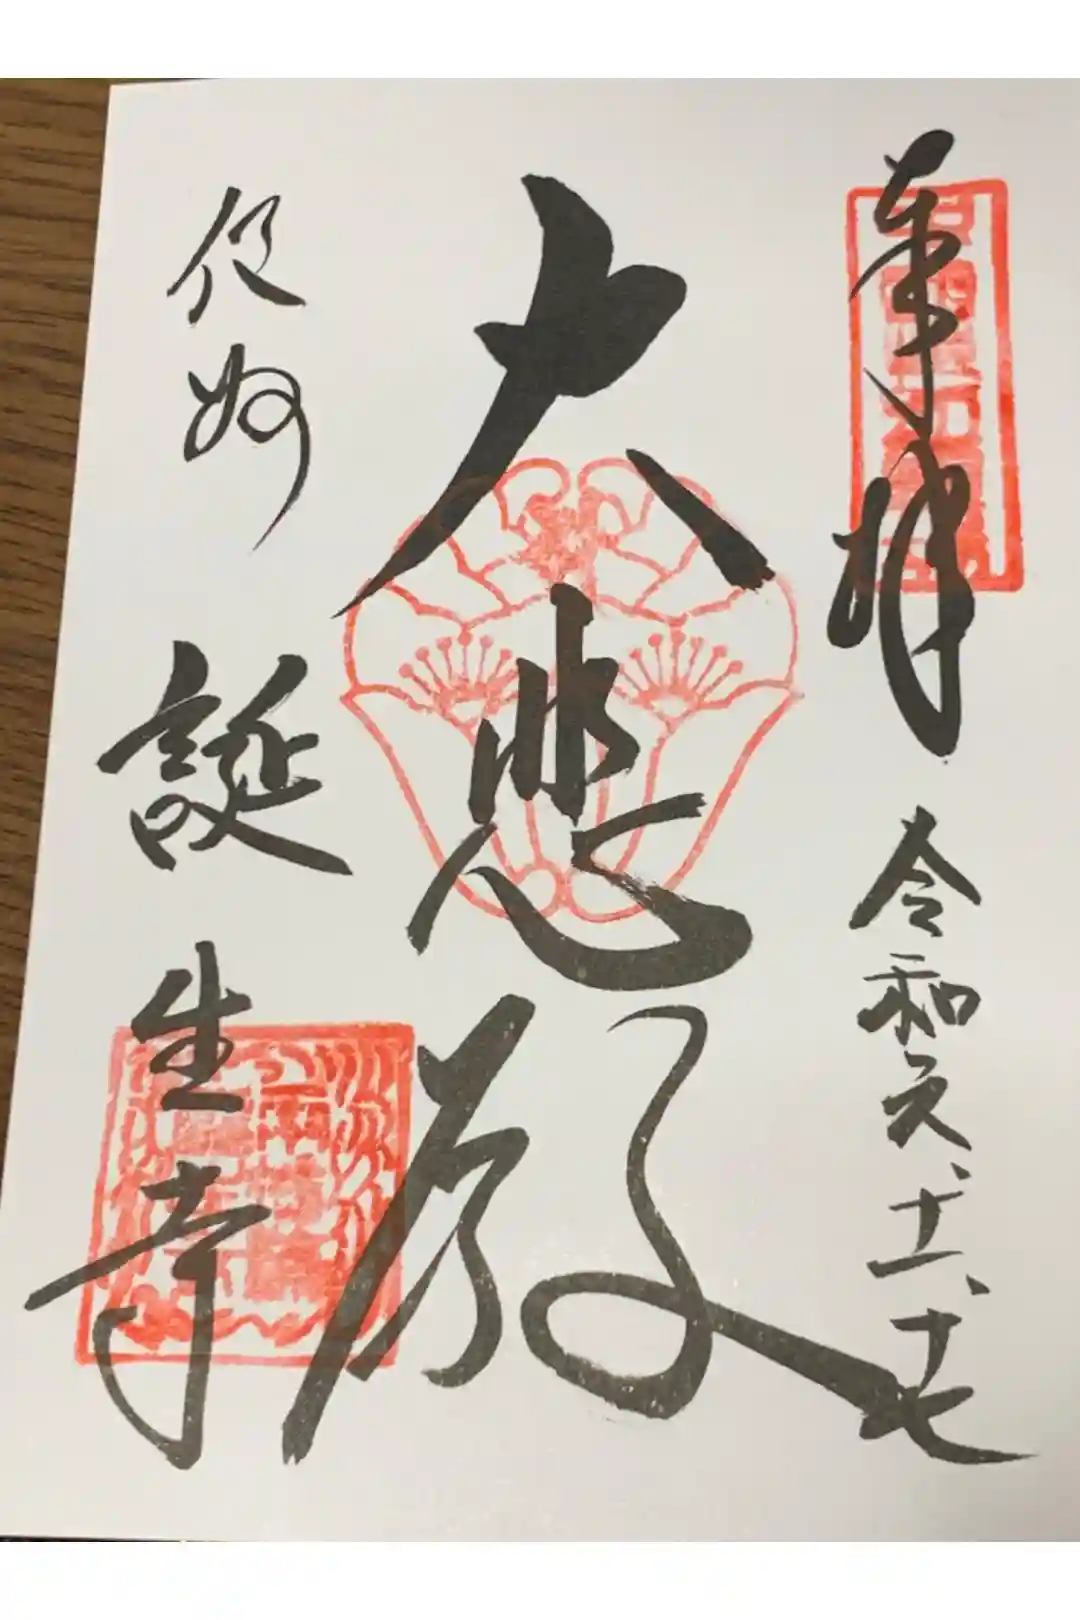 奉拝　令和元、十一、十七
大悲殿
作州　誕生寺